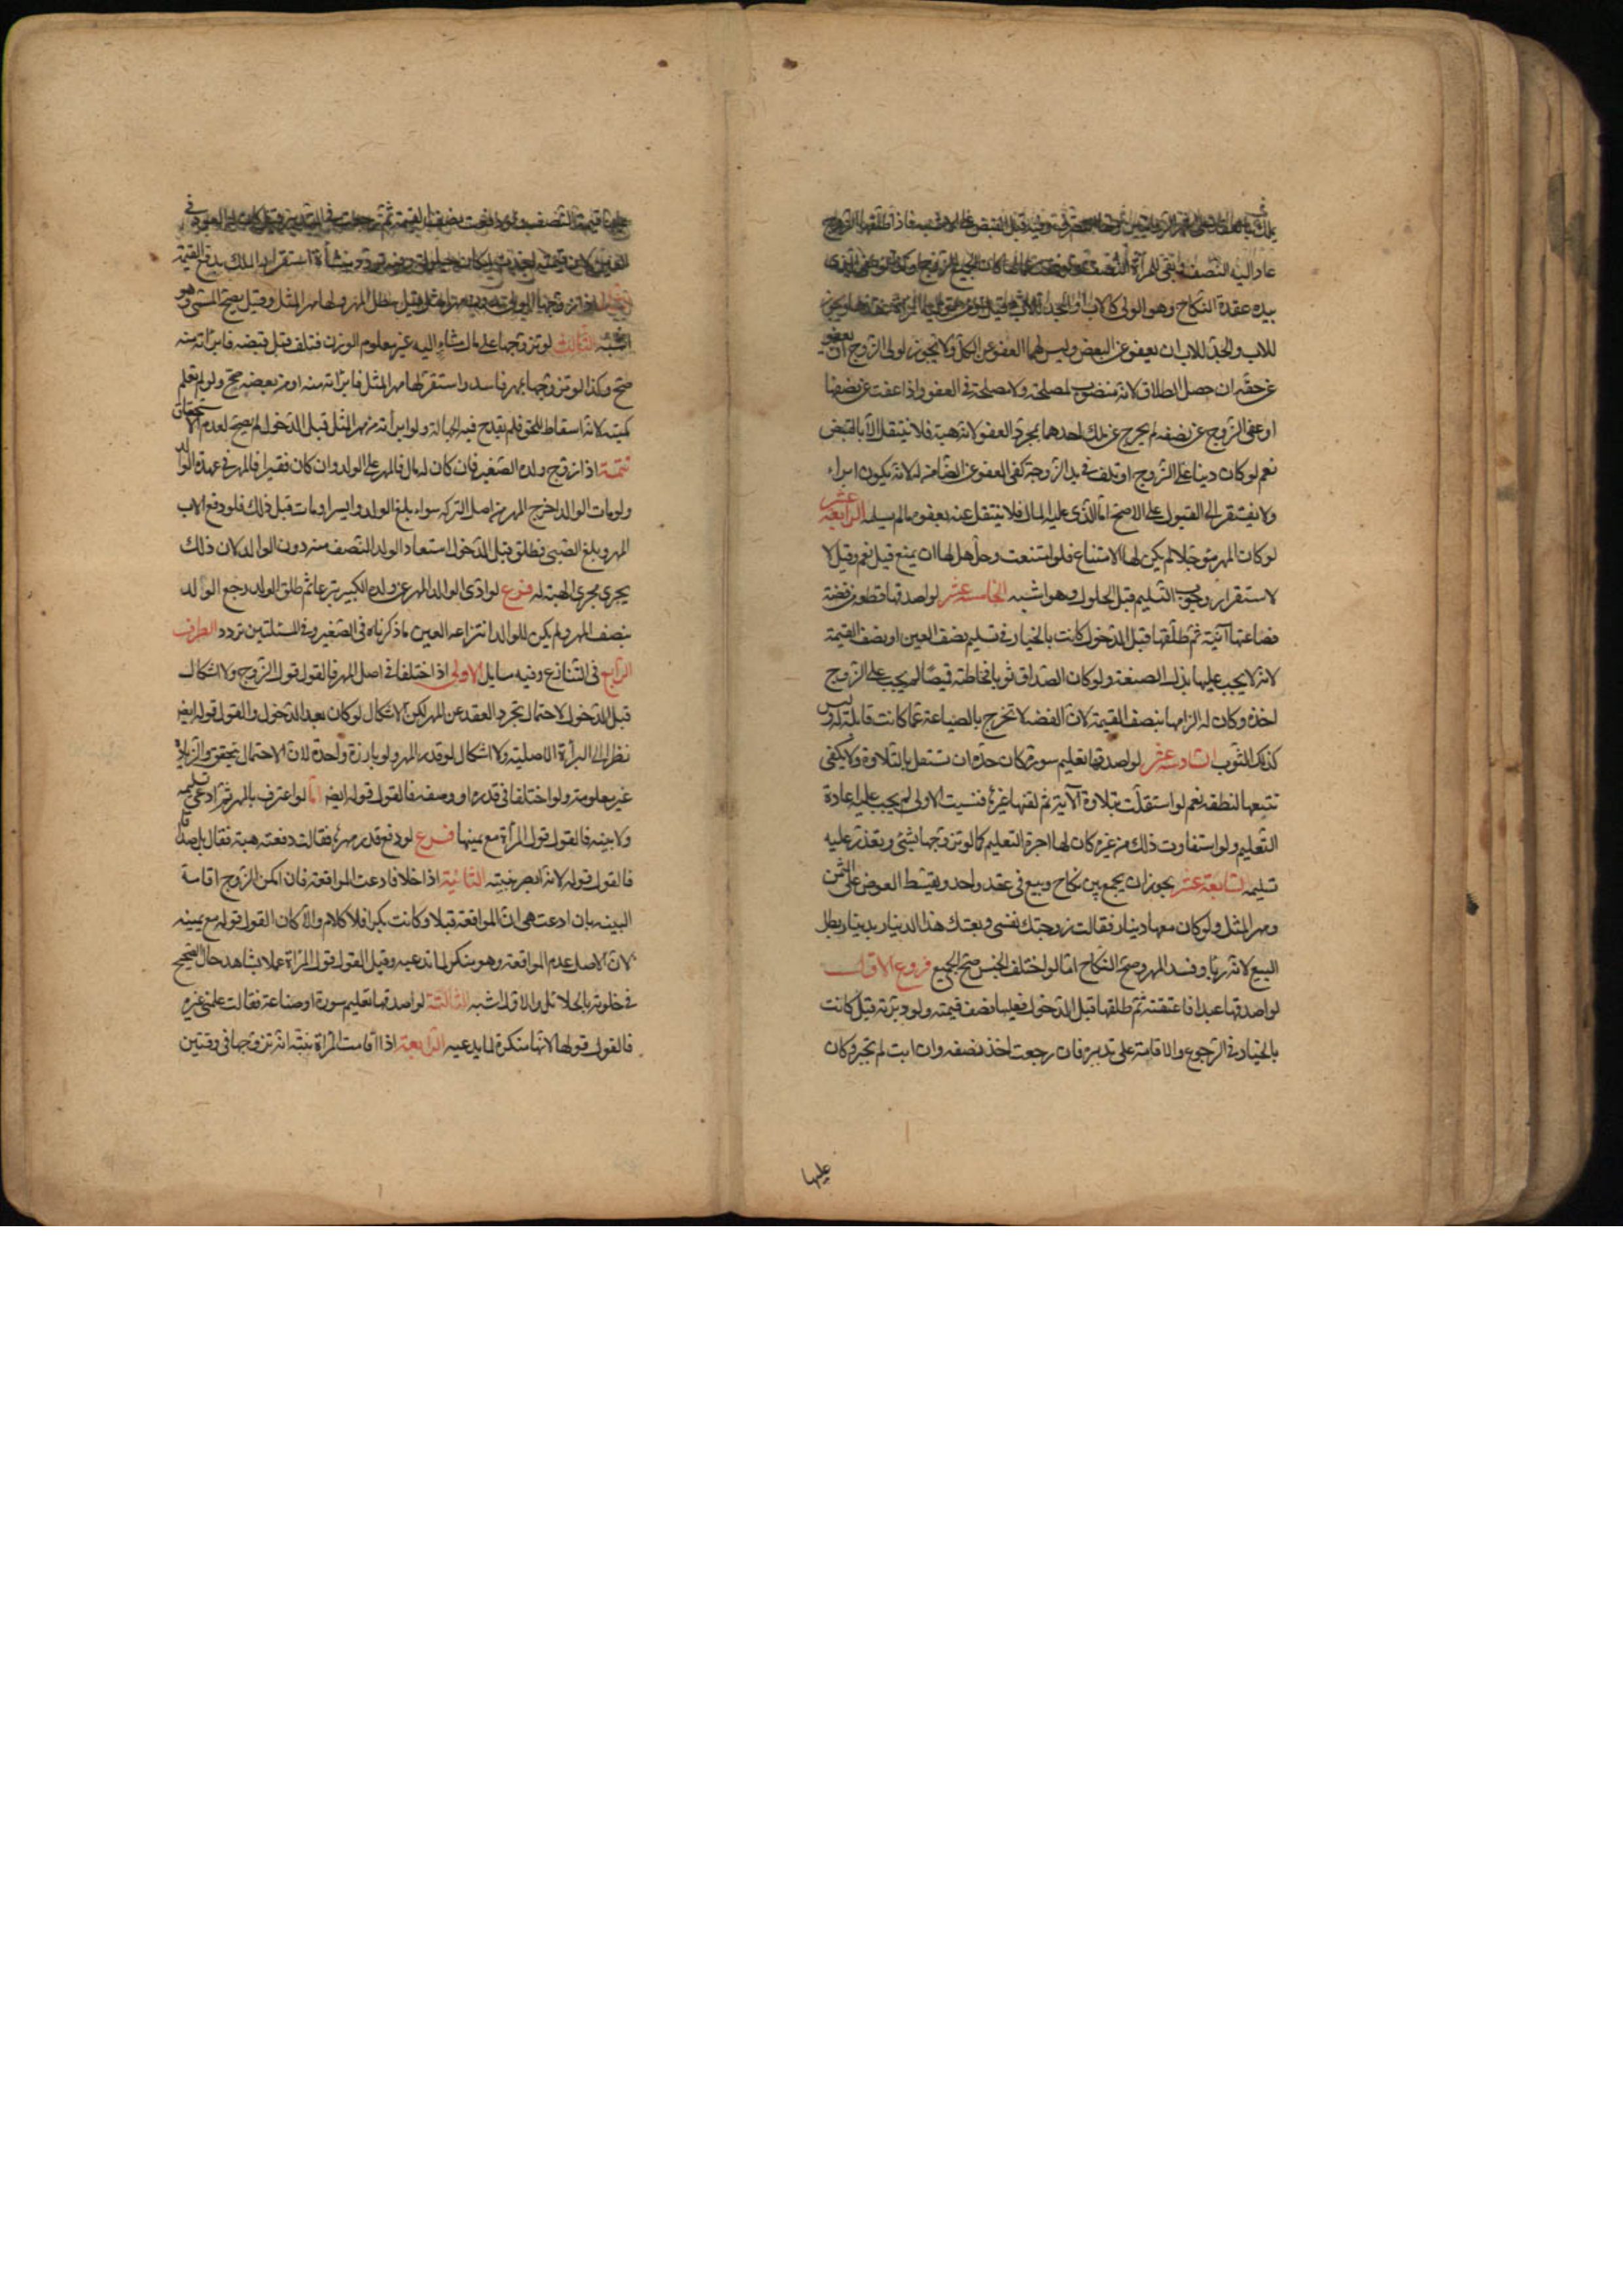 عاد اليه النصف وبقى للمرأة النصف
بيده عقدة النكاح وهو الولى كالاب او الجد للاب وقيل
للاب والجد للاب ان يعفو عن البعض وليس لهما العفو عن الكل ولا يجوز لولى الزوج ان يعفو
عن حقه ان حصل الطلاق لانه منصوب لمصلحته ولا مصلحة فى العفو واذا عفت عن نصفها
او عفى الزوج عن نصفه لم يخرج عن ملك احدهما بمجرد العفو لانه هبة فلا ينتقل الا بالقبض
نعم لو كان دينا على الزوج او تلف فى يد الزوجة كفى العفو عن الضامن له لانه يكون ابراء
ولا يفتقر الى القبول على الاصح اما الذى عليه المال فلا ينتقل عنه بعفوه ما لم يسلمه الرابعة عشر
لو كان المهر مؤجلا لم يكن لها الامتناع فلو امتنعت وحل هل لها ان تمنع قيل نعم وقيل لا
لاستقرار وجوب التسليم قبل الحلول وهو اشبه الخامسة عشر لو اصدقها قطعة من فضة
فصاغتها آنية ثم طلقها قبل الدخول كانت بالخيار فى تسليم نصف العين او نصف القيمة
لانه لا يجب عليها بذل الصنعة ولو كان الصداق ثوبا فخاطته قميصا لم يجب على الزوج
اخذه وكان له الزامها بنصف القيمة لان الفضة لا تخرج بالصياغة عما كانت قابلة له وليس
كذلك الثوب السادسة عشر لو اصدقها تعليم سورة كان حده ان تستقل بالتلاوة ولا يكفى
تتبعها لنطقه نعم لو استقلت بتلاوة الآية ثم لقنها غيرها فنسيت الاولى لم يجب عليه اعادة
التعليم ولو استفادت ذلك من غيره كان لها اجرة التعليم كما لو تزوجها بشئ وتعذر عليه
تسليمه السابعة عشر يجوز ان يجمع بين نكاح وبيع فى عقد واحد ويقسط العوض على الثمن
ومهر المثل ولو كان معها دينار فقالت زوجتك نفسى وبعتك هذا الدينار بدينار بطل
البيع لانه ربا وفسد المهر وصح النكاح اما لو اختلف الجنس صح الجميع فروع الاول
لو اصدقها عبدا فاعتقته ثم طلقها قبل الدخول فعليها نصف قيمته ولو دبرته قيل كانت
بالخيار فى الرجوع والاقامة على تدبيره فان رجعت اخذ نصفه وان ابت لم تجبر وكان
عليها
عليها قيمة النصف ولو دفعت نصف القيمة ثم رجعت فى التدبير قيل كان له العود فى
العين لان القيمة اخذت لمكان الحيلولة وفيه تردد منشأه استقرار الملك بدفع القيمة
الثانى اذا زوجها الولى بدون مهر المثل قيل يبطل المهر ولها مهر المثل وقيل يصح المسمى وهو
اشبه الثالث لو تزوجها على مال مشار اليه غير معلوم الوزن فتلف قبل قبضه فابرأته منه
صح وكذا لو تزوجها بمهر فاسد واستقر لها مهر المثل فابرأته منه او من بعضه صح ولو لم تعلم
كميته لانه اسقاط للحق فلم يقدح فيه الجهالة ولو ابرأته من مهر المثل قبل الدخول لم يصح لعدم الاستحقاق
تتمة اذا زوج ولده الصغير فان كان له مال فالمهر على الولد وان كان فقيرا فالمهر فى عهدة الوالد
ولو مات الوالد اخرج المهر من اصل التركه سواء بلغ الولد وايسر او مات قبل ذلك فلو دفع الاب
المهر وبلغ الصبى فطلق قبل الدخول استعاد الولد النصف منه دون الوالد لان ذلك
يجرى مجرى الهبة له فرع لو ادى الوالد المهر عن ولده الكبير تبرعا ثم طلق الولد رجع الوالد
بنصف المهر ولم يكن للوالد انتزاعه لعين ما ذكرناه فى الصغير وفى المسئلتين تردد الطرف
الرابع فى التنازع وفيه مسايل الاولى اذا اختلفا فى اصل المهر فالقول قول الزوج ولا اشكال
قبل الدخول لاحتمال تجرد العقد عن المهر لكن الاشكال لو كان بعد الدخول والقول قوله ايض
نظرا الى البرأة الاصلية ولا اشكال لو قدر المهر ولو بارزة واحدة لان الاحتمال متحقق والزيادة
غير معلومة ولو اختلفا فى قدره او وصفه فالقول قوله ايض اما لو اعترف بالمهر ثم ادعى تسليمه
ولا بينه فالقول قول المرأة مع يمينها فرع لو دفع قدر مهرها فقالت دفعته هبة فقال بل صداقا
فالقول قوله لانه ابصر بنيته الثانية اذا خلا فادعت المواقعة فان امكن الزوج اقامة
البينه بان ادعت هى ان المواقعة قبلا وكانت بكرا فلا كلام والا كان القول قوله مع يمينه
لان الاصل عدم المواقعة وهو منكر لما تدعيه وقيل القول قول المرأة عملا بشاهد حال الصحيح
فى خلوته بالحلائل والاول اشبه الثالثة لو اصدقها تعليم سورة او صناعة فقالت علمنى غيره
فالقول قولها لانها منكرة لما يدعيه الرابعة اذا اقامت المرأة بينة انه تزوجها فى وقتين